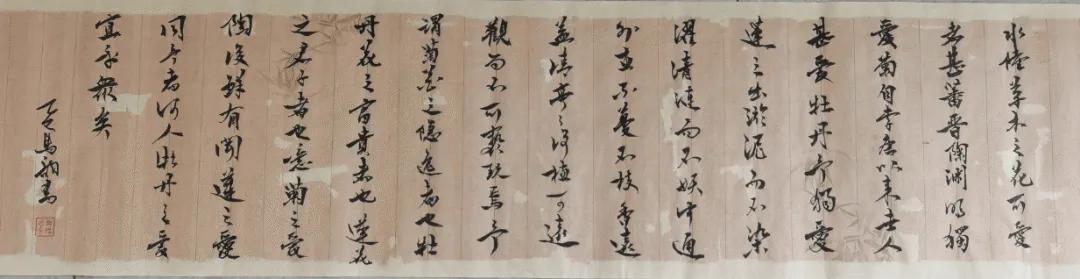 水陸草木之花可愛
者甚蕃晉陶淵明獨
愛菊自李唐以来世人
甚愛牡丹予獨愛
蓮之出淤泥而不染
濯清漣而不妖中通
外直不蔓不枝香遠
益清亭亭淨植可遠
觀而不可褻玩焉予
謂菊花之隱逸者也牡
丹花之富貴者也蓮花
之君子者也噫菊之愛
陶後鮮有聞蓮之愛
同予者何人牡丹之愛
宜乎衆矣
馬書